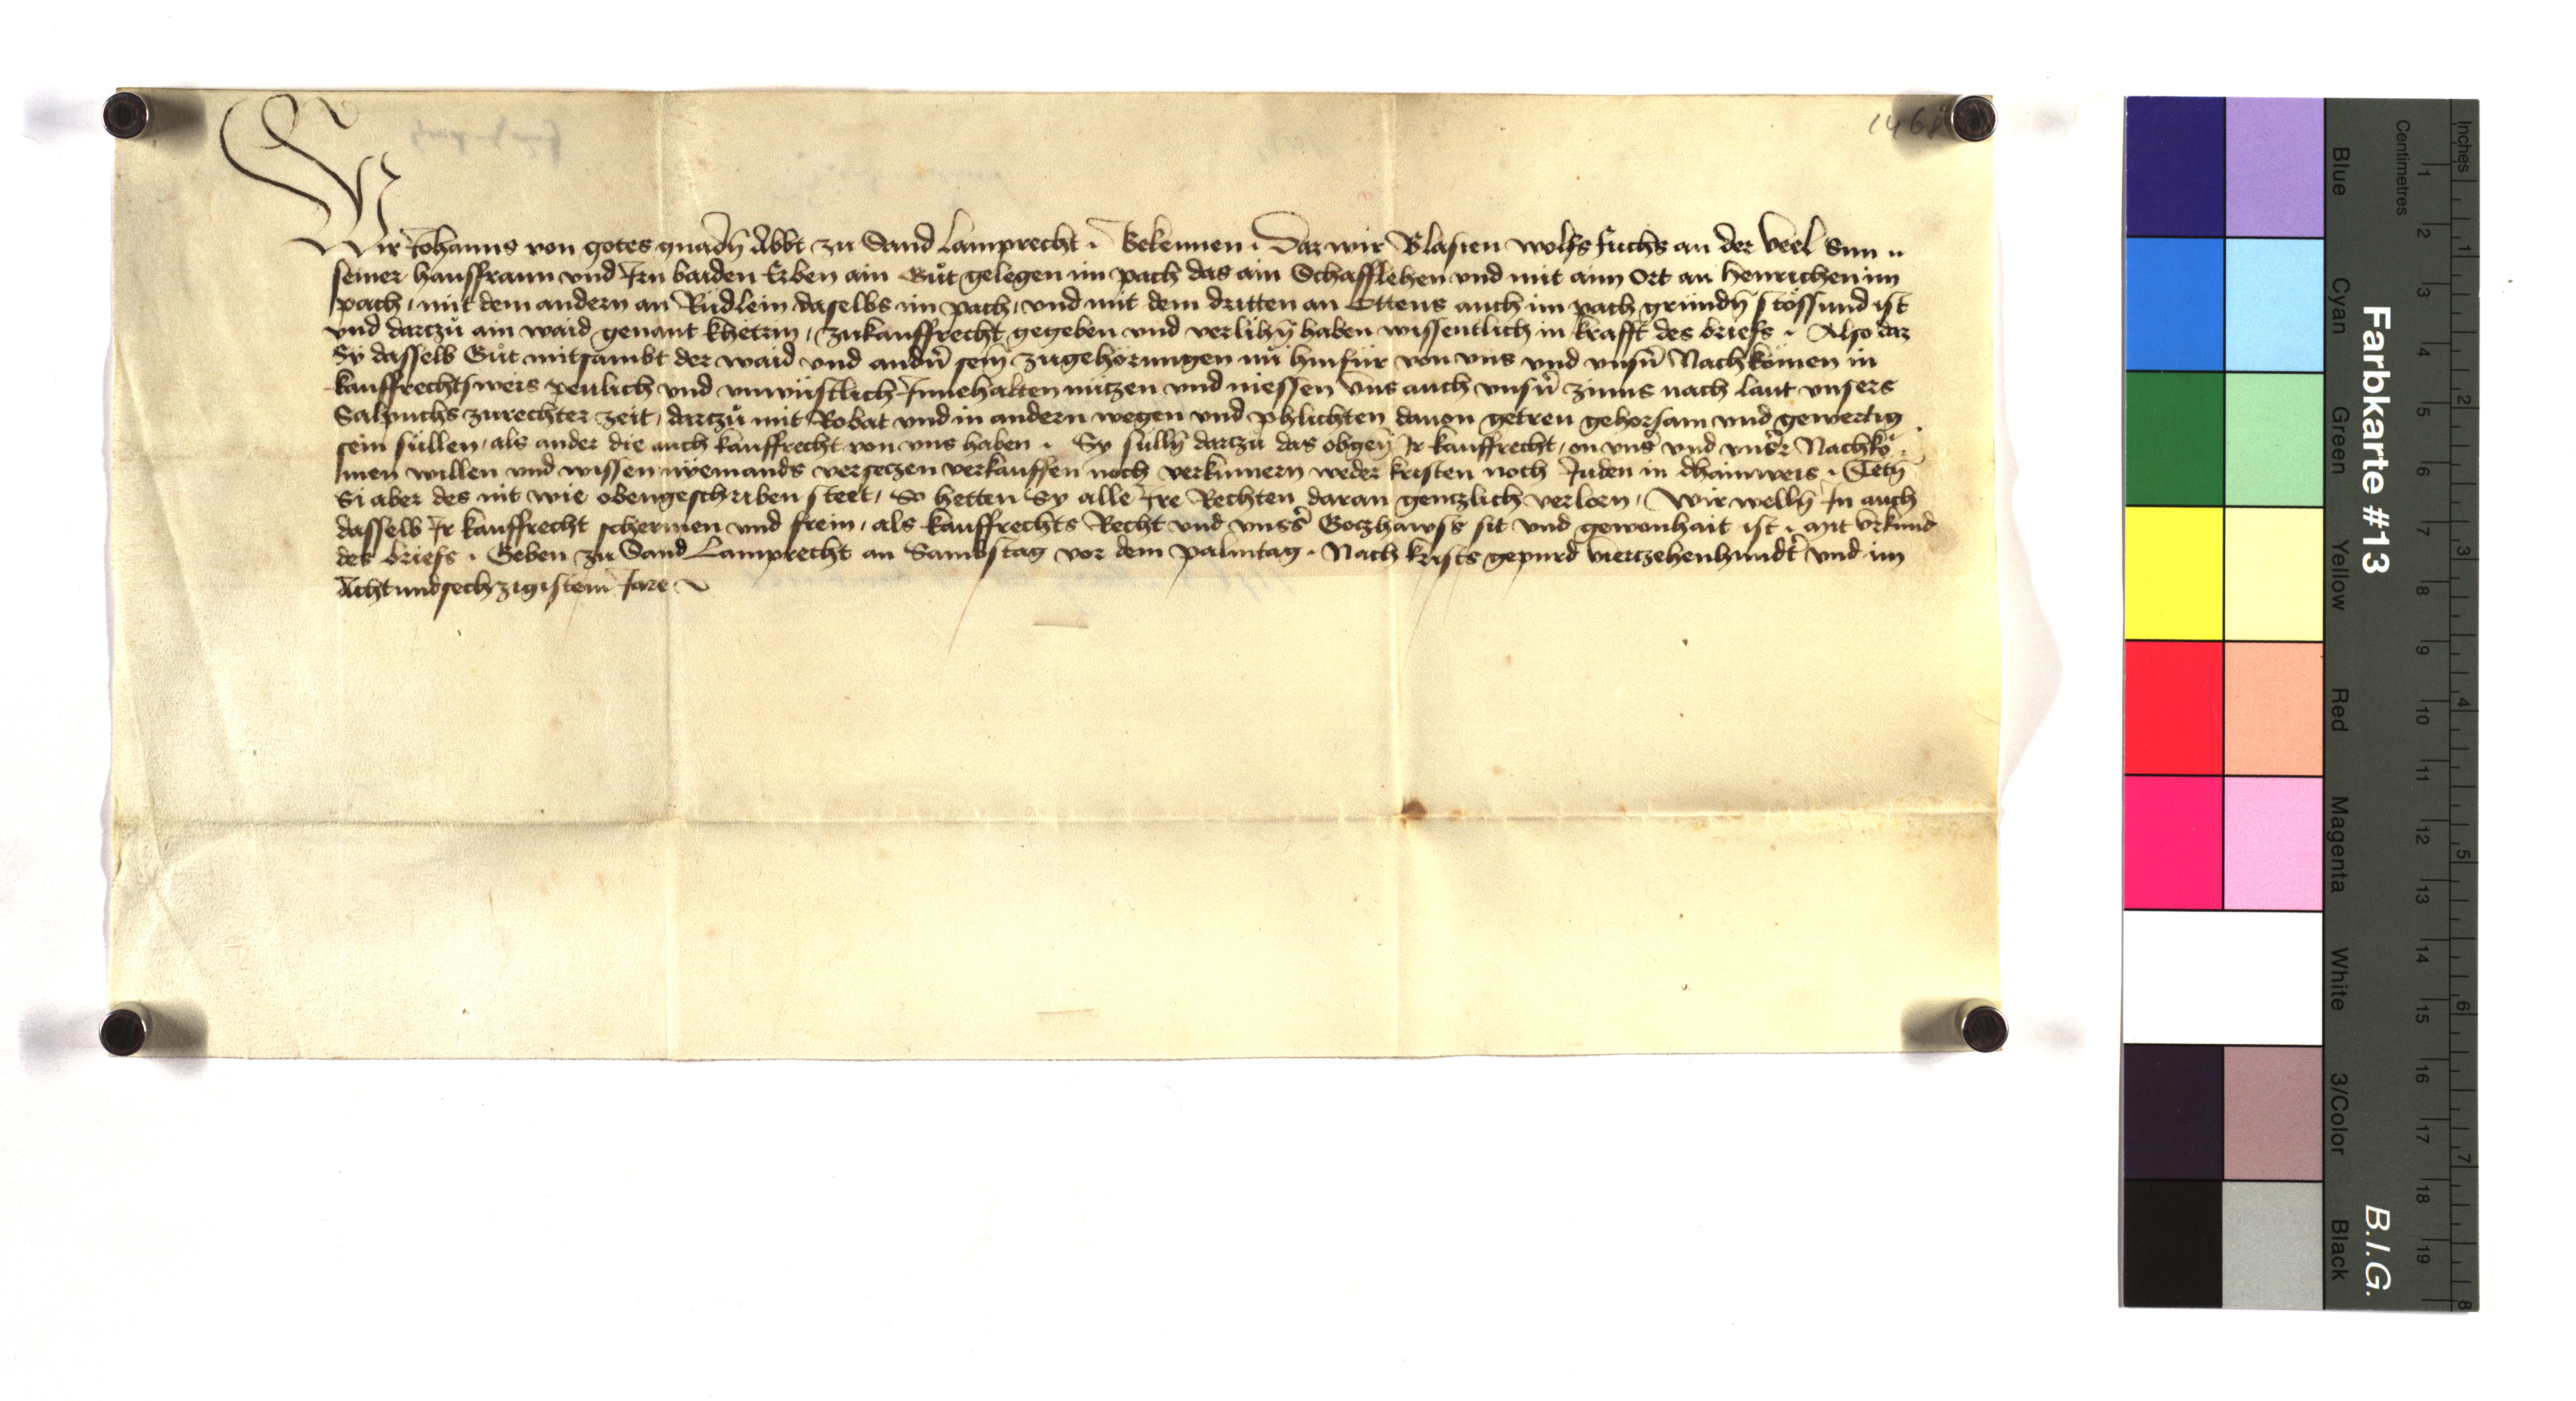 1468
Wir Johanns von gotes gnadn̄ Abbt zu Sand Lamprecht . Bekennen . Daz wir Blasien wolfs fuchs an der Veel Sun
seiner hausfrawn vnd Irn baiden Erben ain Gůt gelegen im pach das ain Schafflehen vnd mit aim Ort an Henrichen im
pach, mit dem andern an Rüdlein daselbs im pach, vnd mit dem dritten an Ottens auch im pach gründn̄ stössund ist
vnd darczů ain waid genant khetrin, zukauffrecht gegeben vnd verlihn̄ haben wissentlich in krafft des briefs . Also daz
Sy dasselb Gůt mitsambt der waid vnd andn̄ sein̄ zugehörungen nů hinfür von vns vnd vnsn̄ Nachkömen in
kauffrechtsweis peulich vnd vnwüstlich Innehalten nützen vnd niessen Vns auch vnsn̄ zinns nach laut vnsers
Salpuchs zurechter zeit, darczů mit Robat vnd in andern wegen vnd phlichten dauon getreu gehorsam vnd gewertig
sein süllen, als ander die auch kauffrecht von vns haben . Sy sülln̄ darczů das obgen̄ Ir kauffrecht, on vnser vnd vnser Nachkö
men willen vnd wissen nyemands verseczen verkauffen noch verkümern weder kristen noch Juden in dhainweis . Tetn̄
Si aber des nit wie obengeschriben steet, So hetten Sy alle Ire Rechten daran genczlich verloren, Wir welln̄ In auch
dasselb Ir kauffrecht schermen vnd frein, als kauffrechts Recht vnd vnsers Goczhawss sit vnd gewonhait ist . mit vrkund
des briefs . Geben zu Sand Lamprecht an Sambstag vor dem palmtag . Nach krists gepurd vierczehenhundert vnd im
Achtundsechzigistem Jare
Farbkarte #13
B.I.G.
Inches 1 2 3 4 5 6 7 8
Centimetres 1 2 3 4 5 6 7 8 9 10 11 12 13 14 15 16 17 18 19
Blue Cyan Green Yellow Red Magenta White 3/Color Black